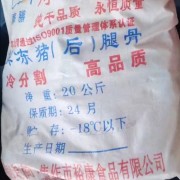 于品质 永恒质量
通过ISO9001质量管理体系认证
冻猪(后)腿骨
冷分割 高品质
净重:20公斤
保质期:24月
贮存:-18℃以下
生产日期
食品有限公司